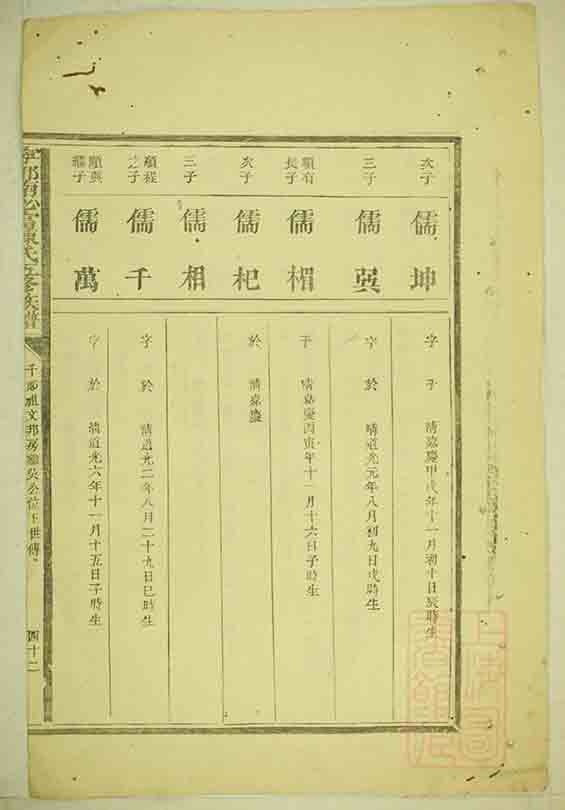 次子
儒坤
字 于 清嘉慶甲戌年十一月初十日辰時生
三子
儒巽
字 於 清道光元年八月初九日戌時生
順有長子
儒楣
于 清嘉慶丙寅年十一月十六日子時生
次子
儒杞
於 清嘉慶
三子
儒相
順程之子
儒千
字 於 清道光二年八月二十九日巳時生
順與繼子
儒萬
字 於 清道光六年十一月十五日子時生
陳氏五修族譜
千郎祖文邦房 公位下世傳
四十二
上海圖書館藏